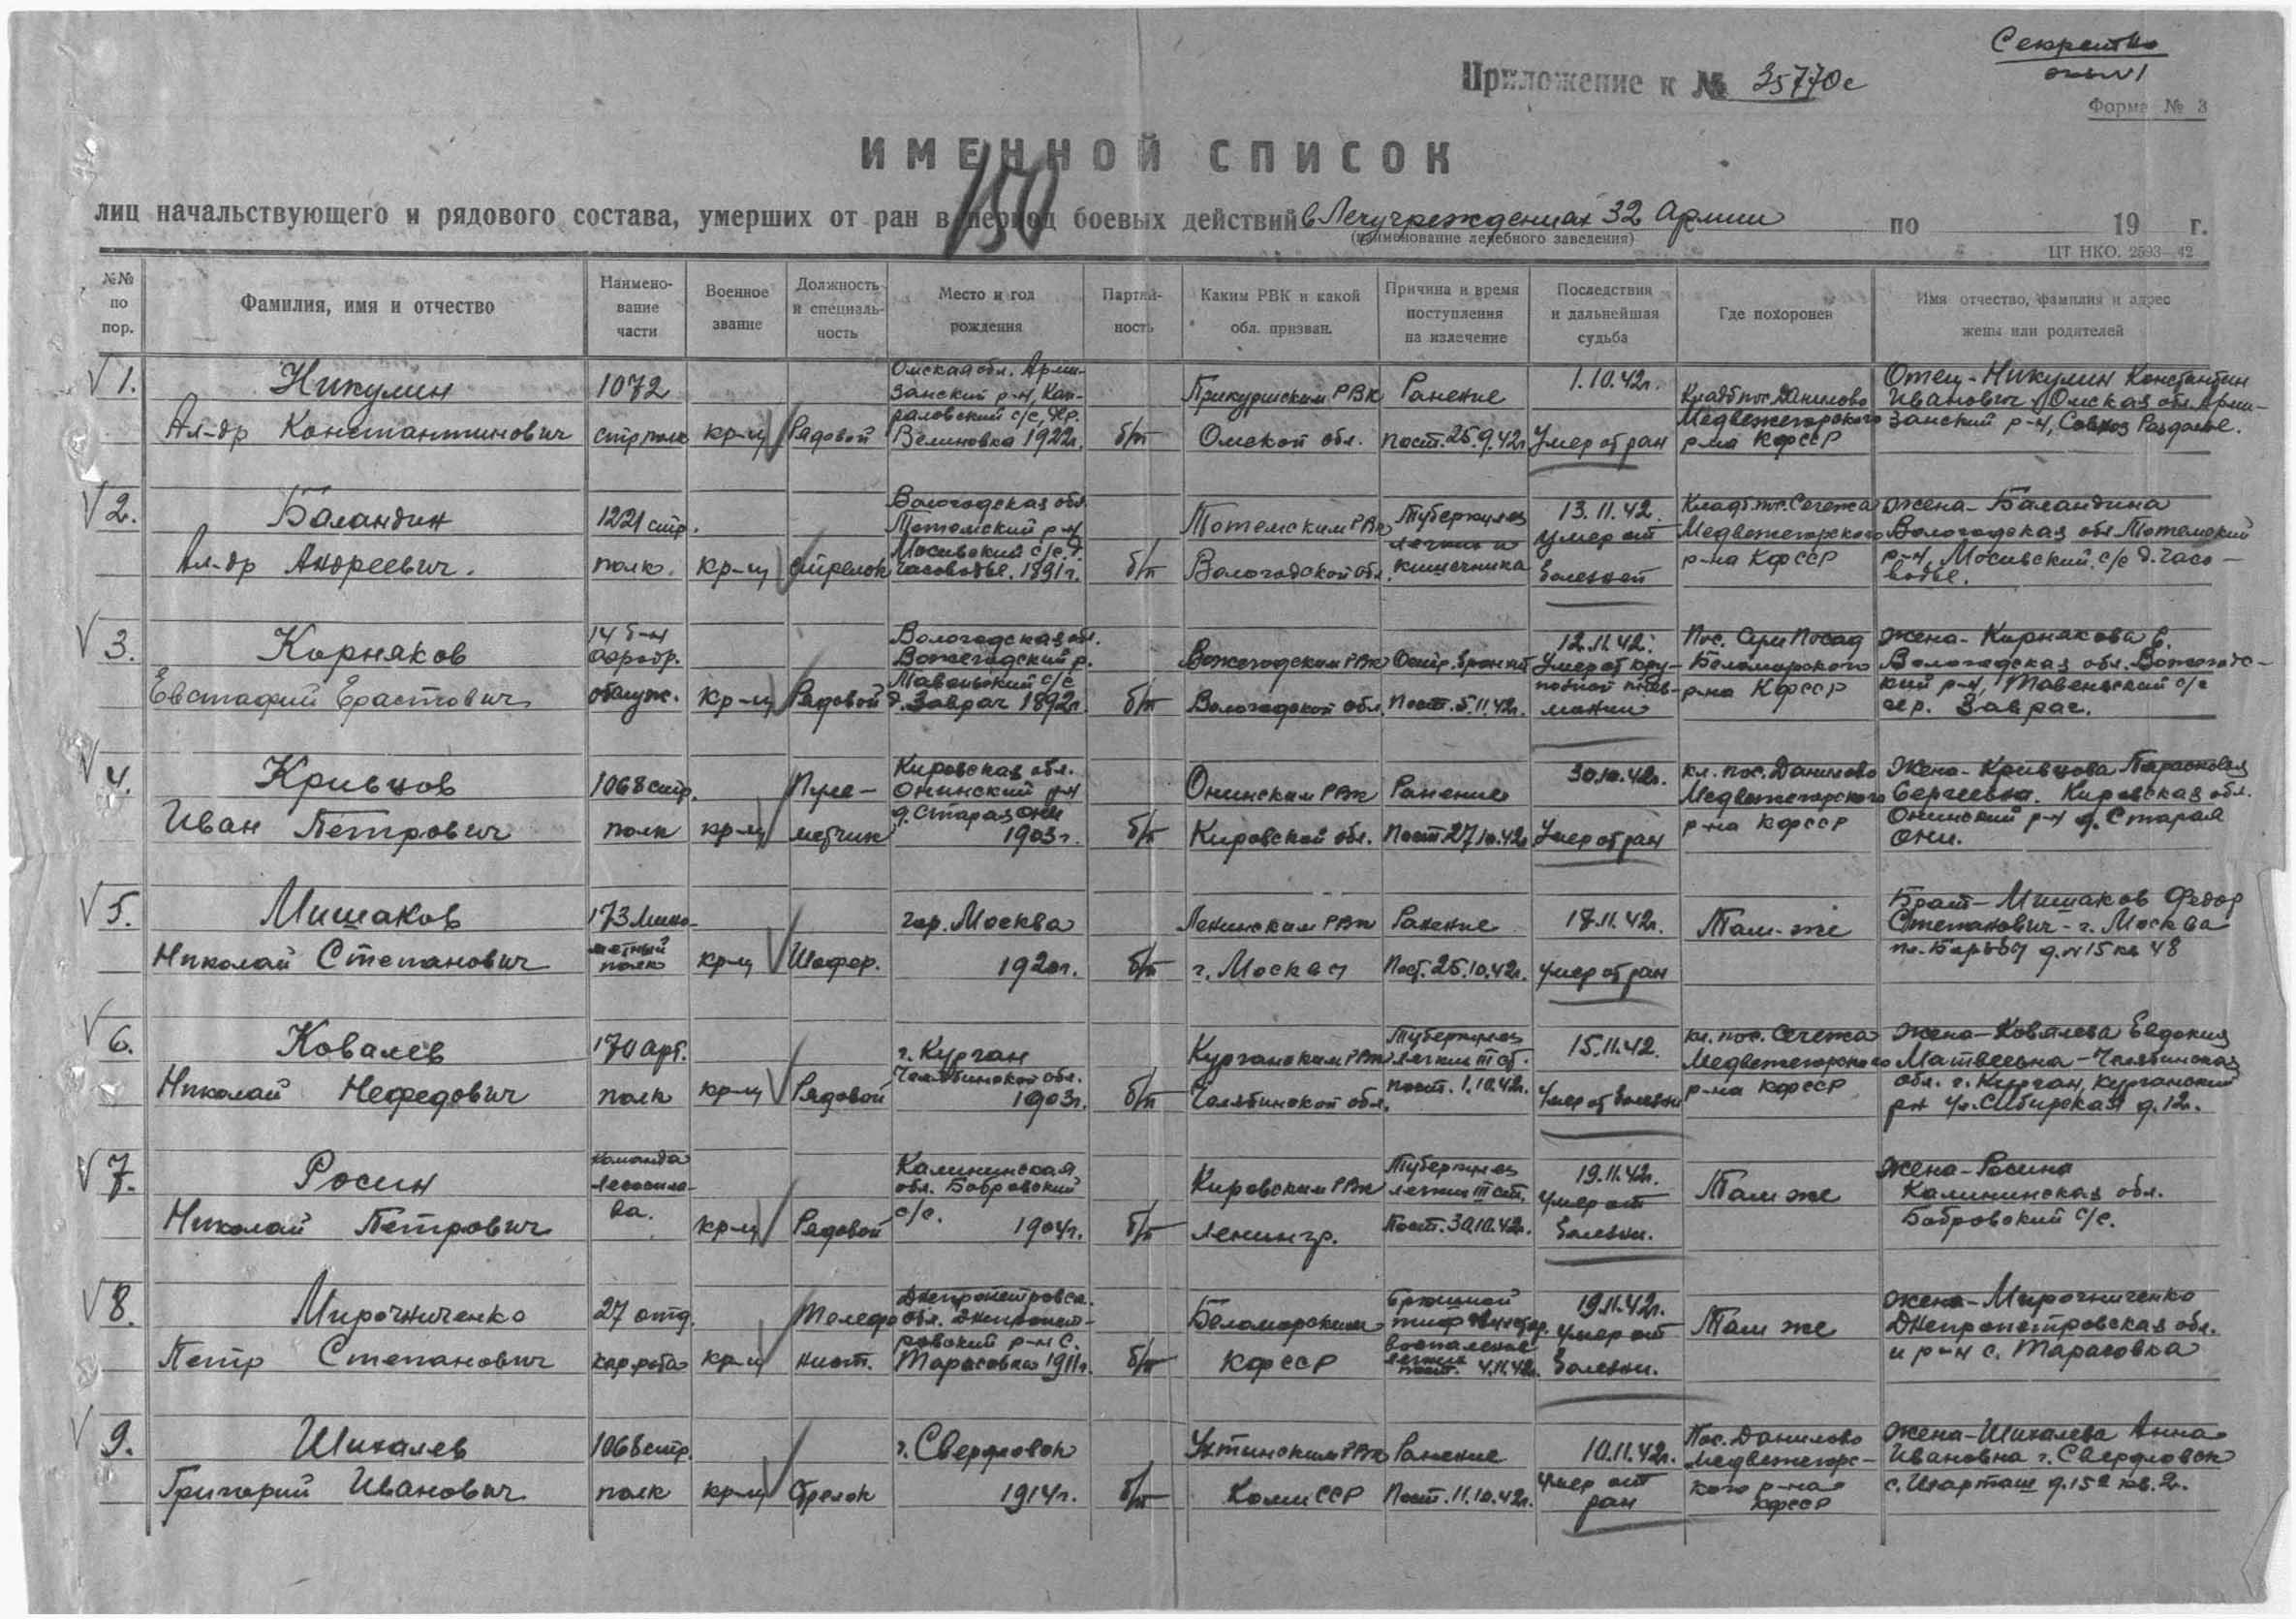 Секретно
экз №1
Приложение к № 35770с
Форма № 3
ИМЕННОЙ СПИСОК
150
лиц начальствующего и рядового состава, умерших от ран в период боевых действий в Лечучреждениях 32 Армии по 19 г.
(наименование лечебного заведения)
ЦТ НКО. 2593—42
№№ по пор.
Фамилия, имя и отчество
Наимено-
вание
части
Военное
звание
Должность
и специаль-
ность
Место и год
рождения
Партий-
ность
Каким РВК и какой
обл. призван.
Причина и время
поступления
на излечение
Последствия
и дальнейшая
судьба
Где похоронен
Имя отчество, фамилия и адрес
жены или родителей
1.
Никулин
Ал-др Константинович
1072
стр полк
кр-ц
Рядовой
Омская обл. Арми-
занский р-н, Кап-
раловский с/с, дер.
1922г.
б/п
РВК
Омской обл.
Ранение
Пост. 25.9.42г
1.10.42г.
Умер от ран
Кладб пос. Данилово
Медвежегорского
р-на КФССР
Отец - Никулин Константин
Иванович Омская обл. Арми-
занский р-н, Совхоз Раздолье.
2.
Баландин
Ал-др Андреевич.
1221 стр.
полк.
кр-ц
стрелок
Вологодская обл
Тотемский р-н
Мосивский с/с д.
Часоводье. 1891г.
б/п
Тотемским РВК
Вологодской обл.
Туберкулез
легких и
кишечника
13.11.42.
умер от
болезней
Кладб. пос. Сегежа
Медвежегорского
р-на КФССР
жена - Баландина
Вологодская обл Тотемский
р-н, Мосивский с/с д. Часо-
водье.
3.
Корняков
Евстафий Ерастович
14 б-н
аэродр.
обслуж.
кр-ц
Рядовой
Вологодская обл.
Вожегодский р.
с/с
д. Заврач 1892г
б/п
Вожегодским РВК
Вологодской обл.
Остр. бронхит
Пост. 5.11.42г.
12.11.42.
Умер от кру-
позной пнев-
монии
Пос. Посад
Беломорского
р-на КФССР
жена - Корнякова Е.
Вологодская обл. Вожегодс-
кий р-н, с/с
дер. Заврач.
4.
Кривцов
Иван Петрович
1068 стр.
полк
кр-ц
Пуле-
метчик
Кировская обл.
Онинский р-н
д. Старая Они
1903г.
б/п
Онинским РВК
Кировской обл.
Ранение
Пост. 27.10.42г
30.10.42г.
Умер от ран
кл. пос. Данилово
Медвежегорского
р-на КФССР
Жена - Кривцова Парасковья
Сергеевна. Кировская обл.
Онинский р-н д. Старая
Они.
5.
Мишаков
Николай Степанович
173 мино-
метный
полк
кр-ц
Шофер.
гор. Москва
1920г.
б/п
Ленинским РВК
г. Москвы
Ранение
Пост. 25.10.42г.
17.11.42г.
умер от ран
Там-же
Брат - Мишаков Федор
Степанович - г. Москва
пл. Борьбы д. №15 кв 48
6.
Ковалев
Николай Нефедович
170 арт.
полк
кр-ц
Рядовой
г. Курган
Челябинской обл.
1903г.
б/п
Курганским РВК
Челябинской обл.
Туберкулез
легких III ст.
пост. 1.10.42г.
15.11.42.
Умер от болезни
кл. пос. Сегежа
Медвежегорского
р-на КФССР
Жена - Ковалева Евдокия
Матвеевна - Челябинская
обл. г. Курган, Курганский
рн ул. Сибирская д. 12.
7.
Росин
Николай Петрович
Команда
лесоспла-
ва.
кр-ц
Рядовой
Калининская
обл. Бобровский
с/с.
1904г.
б/п
Кировским РВК
Ленингр.
Туберкулез
легких III ст.
Пост. 30.10.42г.
19.11.42г.
умер от
болезни.
Там же
Жена - Росина
Калининская обл.
Бобровский с/с.
8.
Мирочниченко
Петр Степанович
27 отд.
кар. рота
кр-ц
Телефо
нист.
Днепропетровск.
обл. Днепропет-
ровский р-н с.
Тарасовка 1911г.
б/п
Беломорским
КФССР
Брюшной
тиф
воспаление
легких
пост. 4.11.42г.
19.11.42г.
умер от
болезни.
Там же
жена - Мирочниченко
Днепропетровская обл.
и р-н с. Тарасовка
9.
Шихалев
Григорий Иванович
1068 стр.
полк
кр-ц
Стрелок
г. Свердловск
1914г.
б/п
Ухтинским РВК
Коми ССР
Ранение
Пост. 11.10.42г.
10.11.42г.
умер от
ран
Пос. Данилово
Медвежегорс-
кого р-на
КФССР
Жена - Шихалева Анна
Ивановна г. Свердловск
с. Шарташ д. 152 кв. 2.